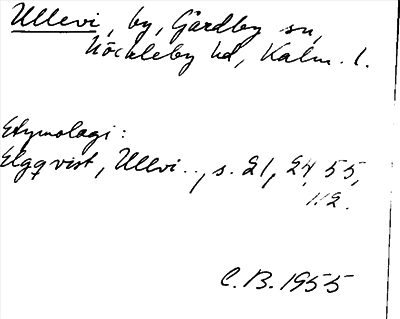 Ullevi, by, Gårdby sn,
Möckleby hd, Kalm. l.
Etymologi:
Elgqvist, Ullvi.., s. 21, 24, 55,
112.
C.B. 1955